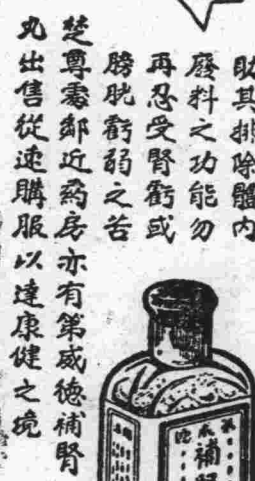 助其排除體內
廢料之功能勿
再忍受腎虧或
膀胱虧弱之苦
楚尊處鄰近药房亦有第威德補腎
丸出售從速購服以達康健之境
補腎